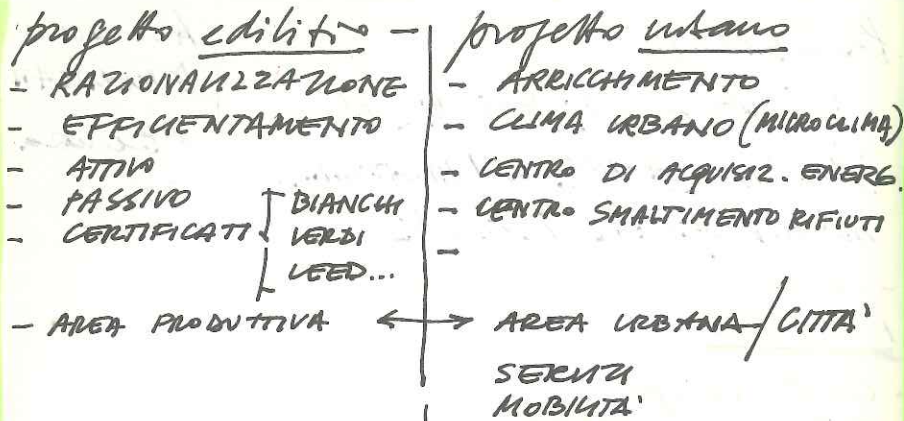 progetto edilizio -
- RAZIONALIZZAZIONE
- EFFICIENTAMENTO
- ATTIVO
- PASSIVO
- CERTIFICATI
BIANCHI
VERDI
LEED...
- AREA PRODUTTIVA ↔
progetto urbano
- ARRICCHIMENTO
- CLIMA URBANO (MICROCLIMA)
- CENTRO DI ACQUISIZ. ENERG.
- CENTRO SMALTIMENTO RIFIUTI
-
AREA URBANA / CITTA'
SERVIZI
MOBILITA'